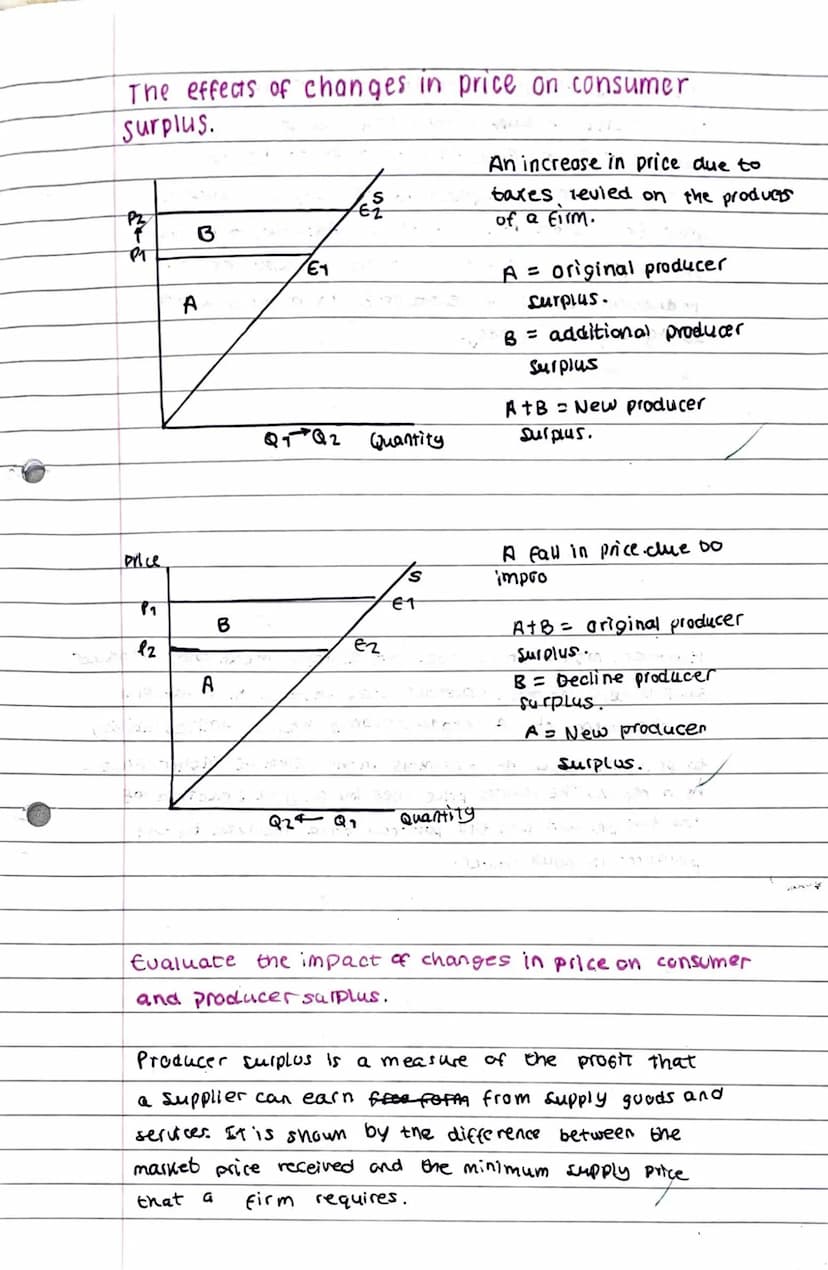 The effects of changes in price on consumer
surplus.
An increase in price due to
taxes levied on the products
of a firm.
P2
↑
P1
B
A
S
E2
E1
A = original producer
surplus.
B = additional producer
surplus
A+B = New producer
surplus.
Q1→Q2 Quantity
A fall in price due to
impro
Price
P1
P2
B
A
S
E1
E2
A+B = original producer
surplus.
B = Decline producer
surplus.
A = New producer
surplus.
Q2← Q1 Quantity
Evaluate the impact of changes in price on consumer
and producer surplus.
Producer surplus is a measure of the profit that
a supplier can earn from supply goods and
services. It is shown by the difference between the
market price received and the minimum supply price
that a firm requires.